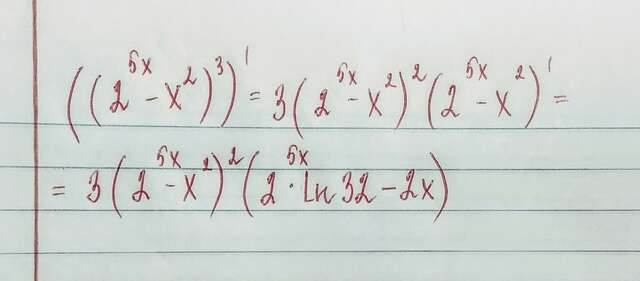 ((2^{5x} - x^2)^3)' = 3(2^{5x} - x^2)^2 (2^{5x} - x^2)' =
= 3(2^{5x} - x^2)^2 (2^{5x} · ln 32 - 2x)